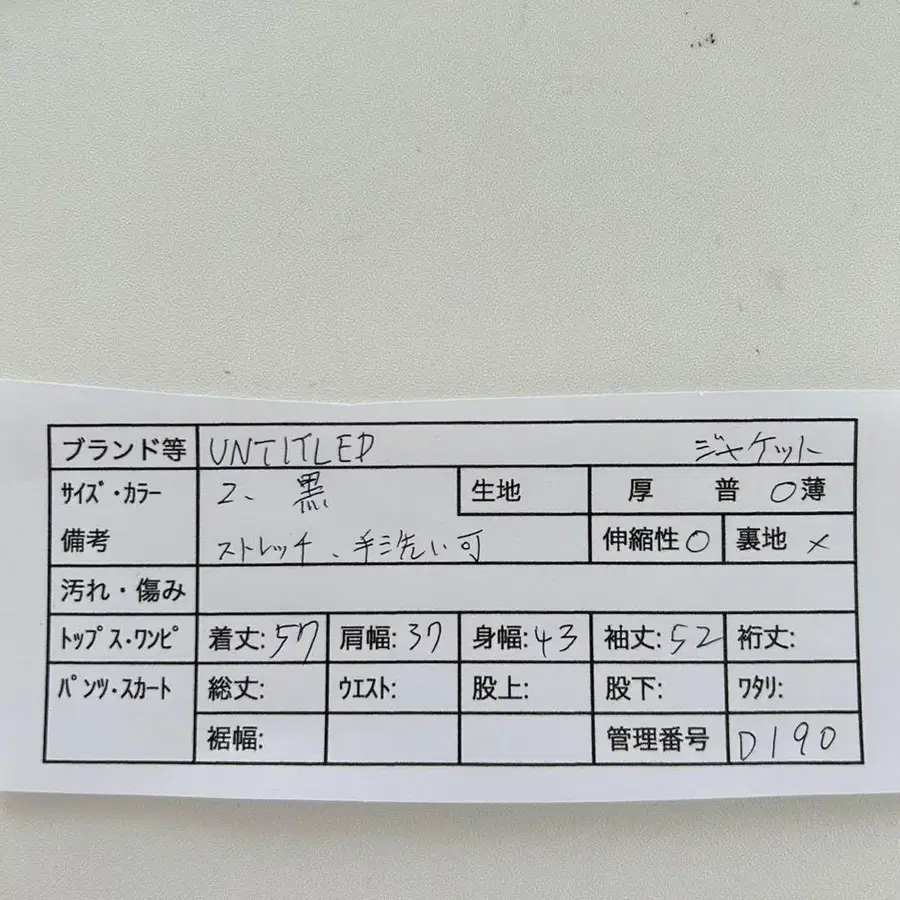 ブランド等 UNTITLED ジャケット
サイズ・カラー 2、黒 生地 厚 普 ○薄
備考 ストレッチ、手洗い可 伸縮性○ 裏地 ×
汚れ・傷み
トップス・ワンピ 着丈:57 肩幅:37 身幅:43 袖丈:52 裄丈:
パンツ・スカート 総丈: ウエスト: 股上: 股下: ワタリ:
裾幅: 管理番号 D190